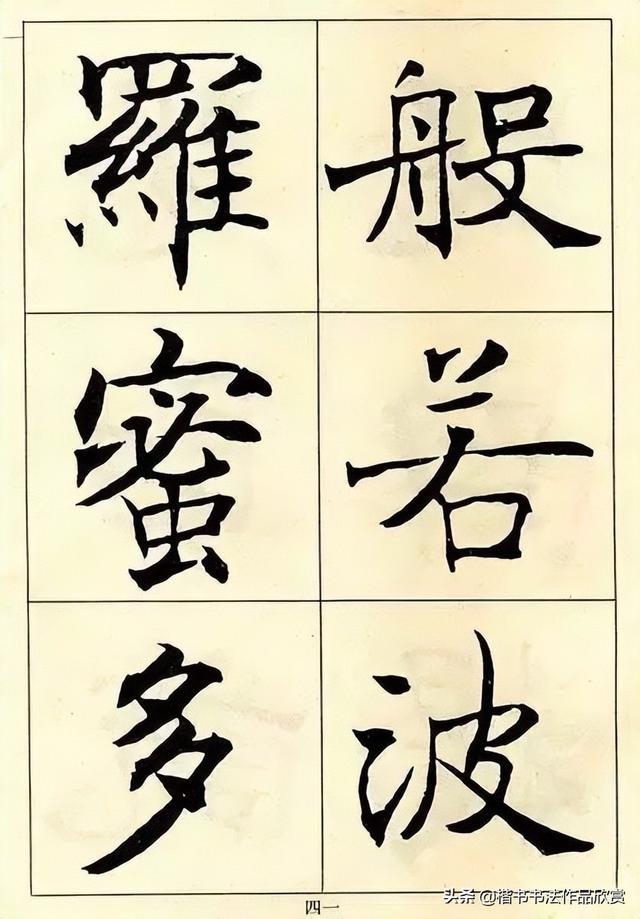 般若波
羅蜜多
四一
头条@楷书书法作品欣赏